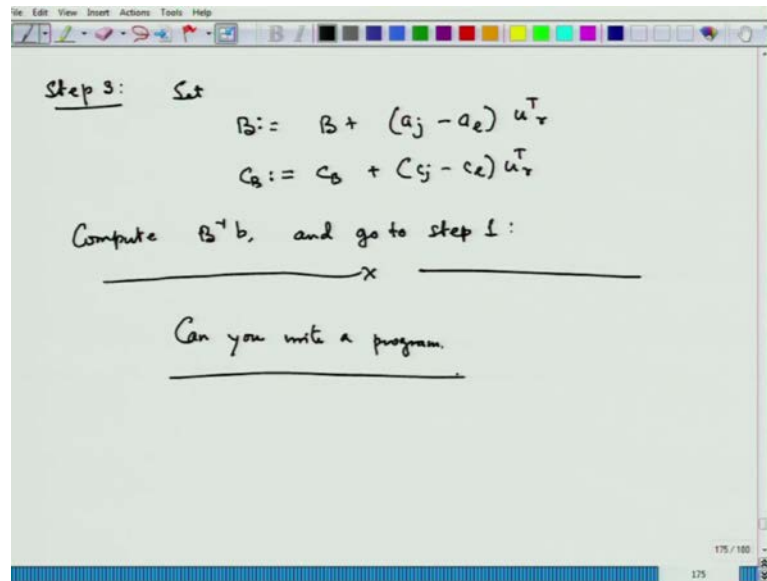 File Edit View Insert Actions Tools Help
Step 3: Set
B := B + (a_j - a_l) u_r^T
C_B := C_B + (c_j - c_l) u_r^T
Compute B^-1 b, and go to step 1:
x
Can you write a program.
175 / 180
175